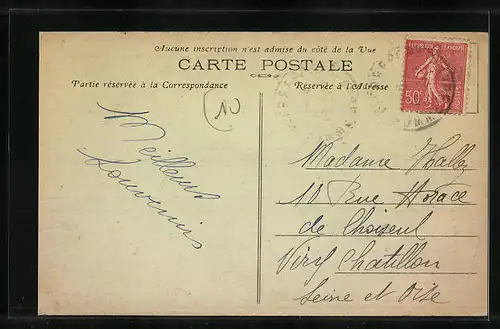 Aucune inscription n'est admise du côté de la Vue
CARTE POSTALE
Partie réservée à la Correspondance
Réservée à l'Adresse
10
REPUBLIQUE FRANÇAISE
50c
Meilleurs
Souvenirs
Madame Hallez
11 Rue Horace
de Choiseul
Viry Chatillon
Seine et Oise